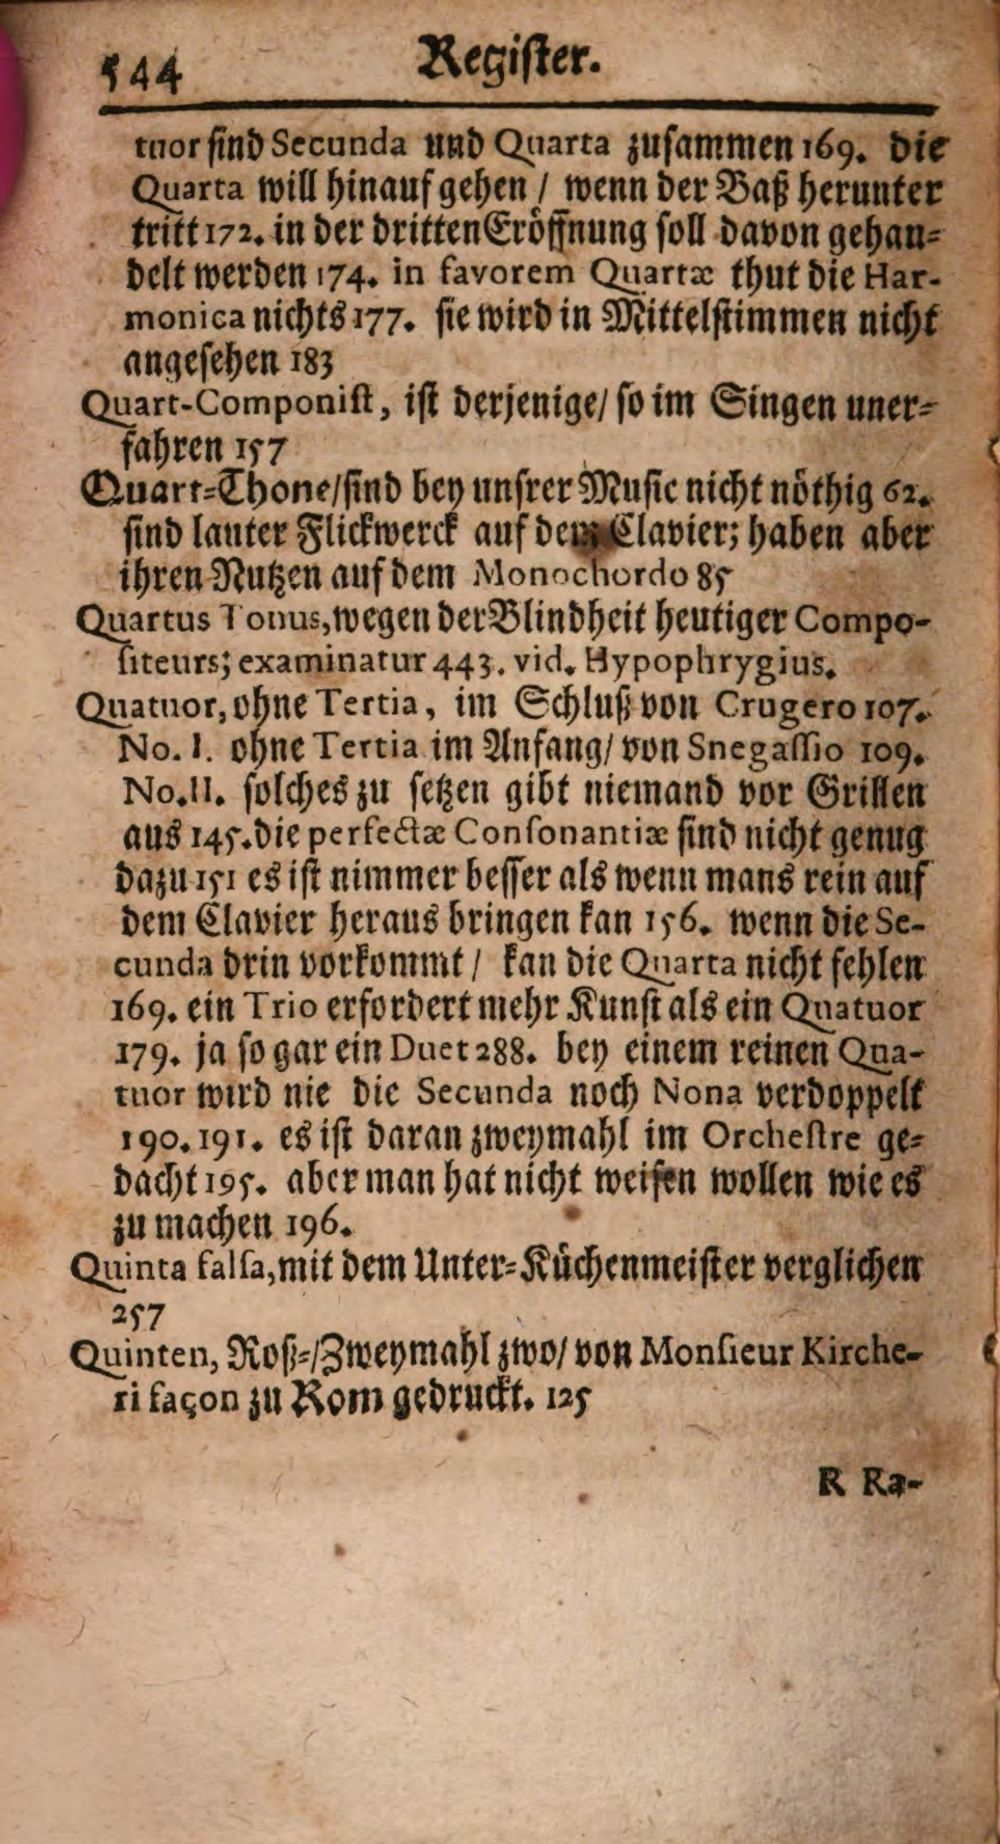 544 Register.
tuor sind Secunda und Quarta zusammen 169. die
Quarta will hinauf gehen / wenn der Baß herunter
tritt 172. in der dritten Eröffnung soll davon gehan-
delt werden 174. in favorem Quartæ thut die Har-
monica nichts 177. sie wird in Mittelstimmen nicht
angesehen 183
Quart-Componist, ist derjenige / so im Singen uner-
fahren 157
Quart-Thone / sind bey unsrer Music nicht nöthig 62.
sind lauter Flickwerck auf dem Clavier; haben aber
ihren Nutzen auf dem Monochordo 85
Quartus Tonus, wegen der Blindheit heutiger Compo-
siteurs; examinatur 443. vid. Hypophrygius.
Quatuor, ohne Tertia, im Schluß von Crugero 107.
No. I. ohne Tertia im Anfang / von Snegassio 109.
No. II. solches zu setzen gibt niemand vor Grillen
aus 145. die perfectæ Consonantiæ sind nicht genug
dazu 151 es ist nimmer besser als wenn mans rein auf
dem Clavier heraus bringen kan 156. wenn die Se-
cunda drin vorkommt / kan die Quarta nicht fehlen
169. ein Trio erfordert mehr Kunst als ein Quatuor
179. ja so gar ein Duet 288. bey einem reinen Qua-
tuor wird nie die Secunda noch Nona verdoppelt
190. 191. es ist daran zweymahl im Orchestre ge-
dacht 195. aber man hat nicht weisen wollen wie es
zu machen 196.
Quinta falsa, mit dem Unter-Küchenmeister verglichen
257
Quinten, Roß-/ Zweymahl zwo / von Monsieur Kirche-
ri façon zu Rom gedruckt. 125
R Ra-